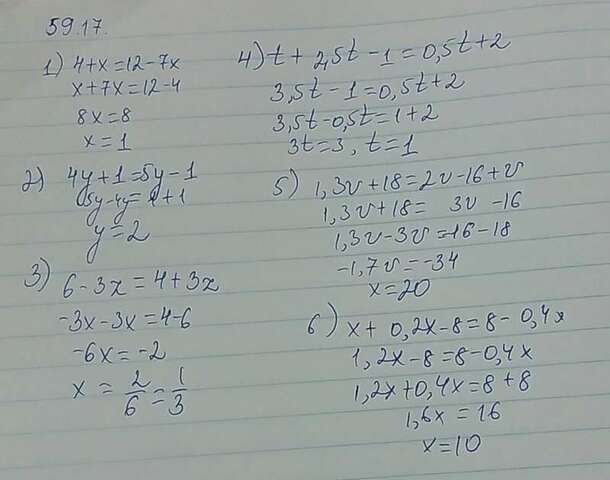 59.17.
1) 4+x=12-7x
x+7x=12-4
8x=8
x=1
2) 4y+1=5y-1
5y-4y=1+1
y=2
3) 6-3x=4+3x
-3x-3x=4-6
-6x=-2
x = 2/6 = 1/3
4) t + 2,5t -1 = 0,5t+2
3,5t -1=0,5t+2
3,5t-0,5t=1+2
3t=3, t=1
5) 1,3v+18=2v-16+v
1,3v+18= 3v -16
1,3v-3v=-16-18
-1,7v=-34
x=20
6) x+ 0,2x-8=8-0,4x
1,2x-8=8-0,4x
1,2x+0,4x=8+8
1,6x=16
x=10